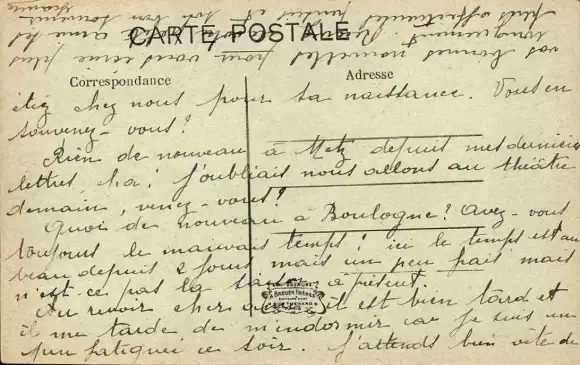 CARTE POSTALE
Correspondance
Adresse
étiez chez nous pour sa naissance. Vous en
souvenez-vous?
Rien de nouveau à Metz depuis mes dernières
lettres, ha! j'oubliais nous allons au théâtre
demain, venez-vous?
Quoi de nouveau à Boulogne? Avez-vous
toujours le mauvais temps? ici le temps est au
beau depuis 2 jours mais un peu frais mais
n'est-ce pas la saison à présent.
Au revoir cher il est bien tard et
il me tarde de m'endormir car je suis un
peu fatigué ce soir. J'attends bien vite de
vos bonnes nouvelles pour vous plus
longuement. Recevez cher ami les
plus affectueuses pensées et bon souvenir